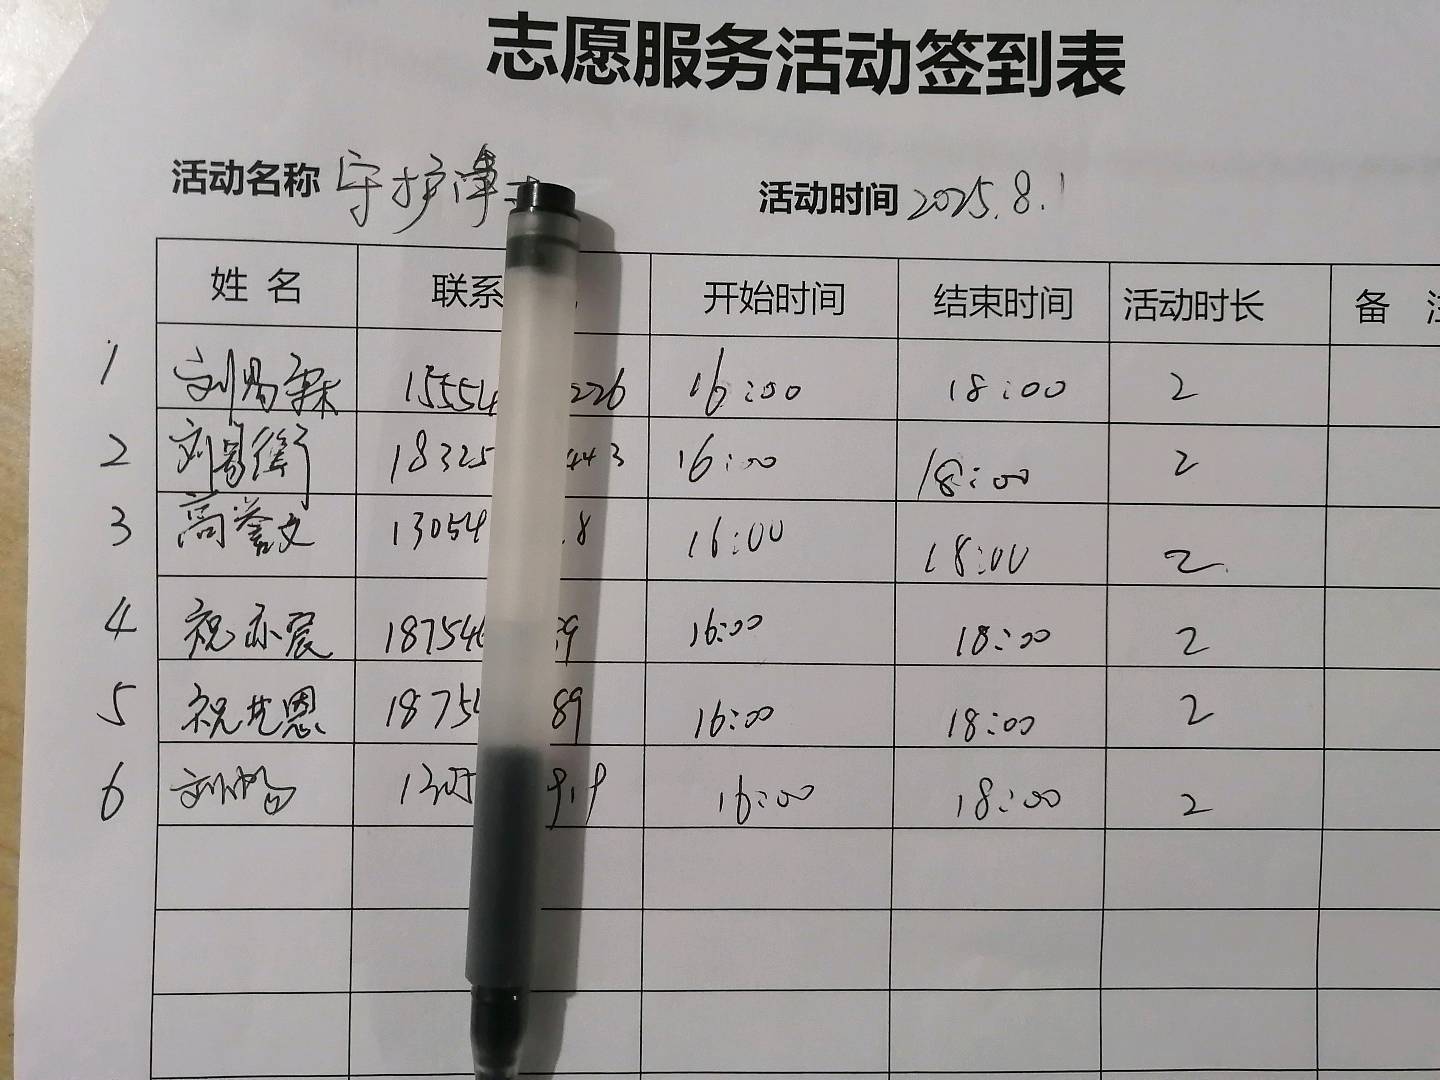 志愿服务活动签到表
活动名称 守护津 活动时间 2025.8.1
姓名 联系 开始时间 结束时间 活动时长 备
1 刘 15554 226 16:00 18:00 2
2 刘 衡 18325 443 16:00 18:00 2
3 高誉文 13054 8 16:00 18:00 2.
4 祝亦宸 18754 89 16:00 18:00 2
5 祝艺恩 1875 89 16:00 18:00 2
6 刘 16:00 18:00 2